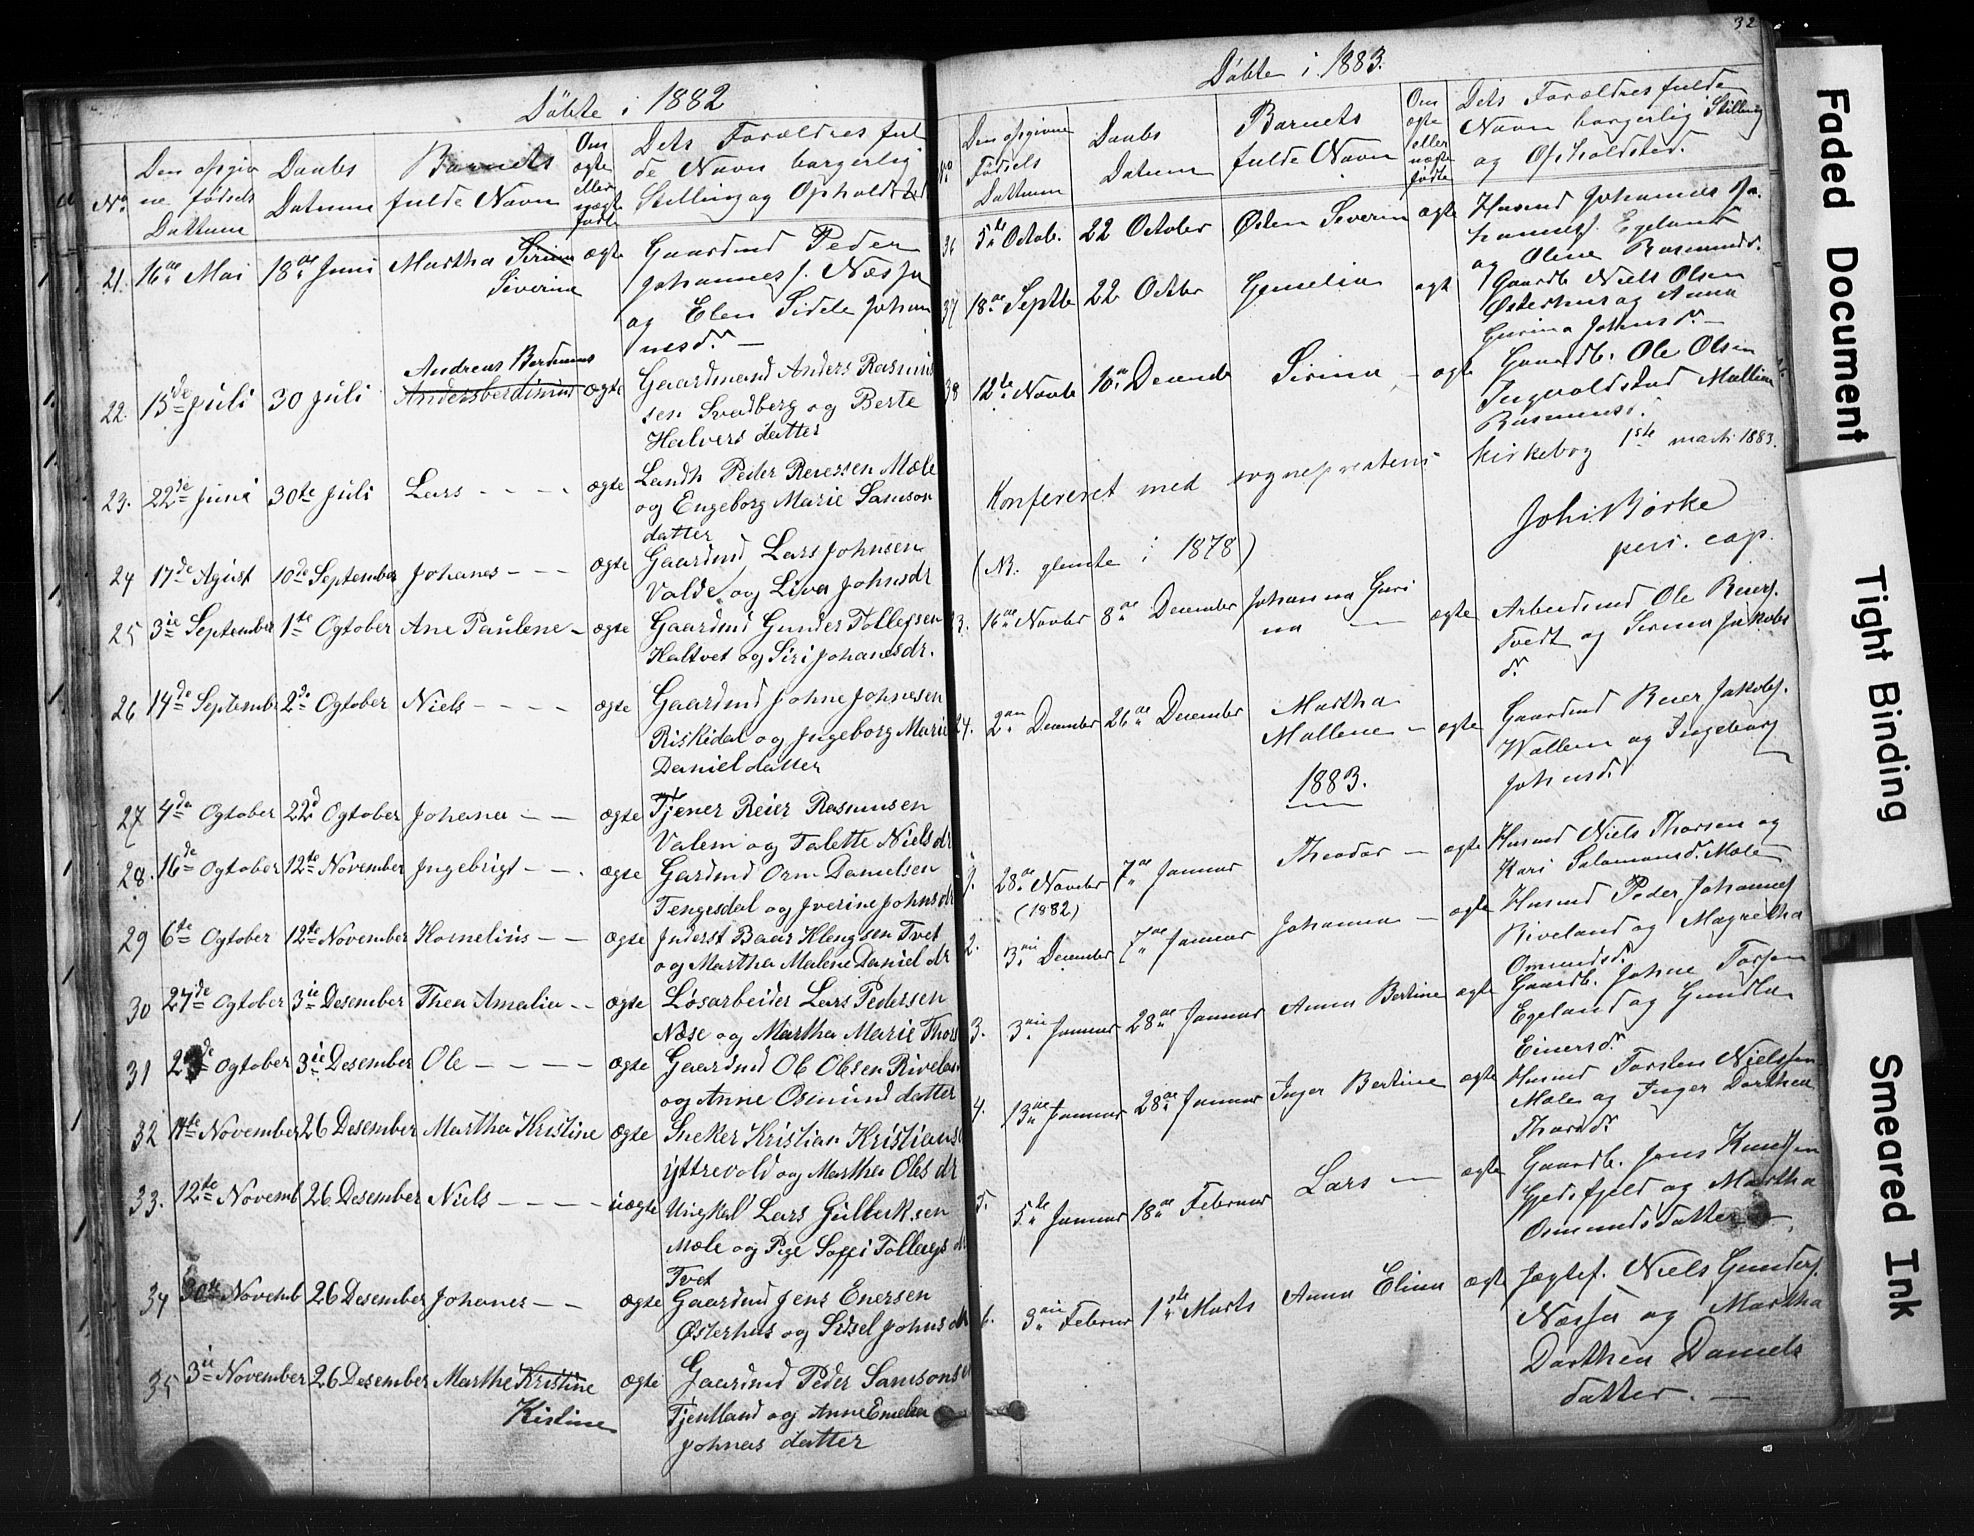 Döbte i 1882
No
Den opgiv
ne fødsels
Dattum
Daabs
Datum
Barnets
fulde Navn
Om
ægte
eller
uægte
født
Dets Forældres ful
de Navn borgerlig
Stilling og Opholdsted
21. 16de Mai 18de Juni Martha Sirine ægte Gaardmd Peder
Severine Johannes s. Næssa
og Elen Sidele Johan
nesd. —
Andreas Berdinus
22. 15de Juli 30 Juli Andersberdinus ægte Gaardmand Anders Rasmus
sen Svadberg og Berte
Halvers datter
23. 22de Juni 30te Juli Lars - - - - ægte Landh Peder Reiessen Mæle
og Engeborg Marie Samson
datter
24 17de Agust 10de September Johanes - - - ægte Gaardmd Lars Johnsen
Valde og Liva Johnsdr
25 3ie September 1te Ogtober Ane Paulene - ægte Gaardmd Gunder Tollefsen
Kaltvet og Siri Johanesdr.
26 14de Septembr 2de Ogtober Niels - - - - ægte Gaardmd Johne Johnesen
Riskidal og Jngeborg Marie
Daniel datter
27 4de Ogtober 22d Ogtober Johana - - ægte Tjener Reier Rasmusen
Valem og Talette Niels dr
28. 16de Ogtober 12te November Jngebrigt - - . ægte Gardmd Orm Danielsen
Tengesdal og Jverine Johns dr
29 6te Ogtober 12te November Kornelius - - ægte Jnderst Baar Klengsen Tvet
og Martha Malene Daniel dr
30 27de Ogtober 3ie Desember Thea Amalia - - ægte Løsarbeider Lars Pedersen
Næse og Martha Marie Thors
31 de Ogtober 3ie Desember Ole - - - - - ægte Gaardmd Ole Olsen Rivelan
og Anne Osmund datter
32 11te November 26 Desember Martha Kristine ægte Sneker Kristian Kristians
yttrevold og Martha Oles dr
33. 12te Novemb 26 Desember Niels - - - - uægte Ungkal Lars Gulleiksen
Mæle og Pige Soffi Tollevgs dr
Tvet
34 30te Novemb 26 Desember Johanes - - ægte Gaardmd Jens Enersen
Østerhus og Sidsel Johns dr
35 3ie November 26 Desember Marthe Kristine ægte Gaardmd Peder Samsonsen
Kistine Tjentland og Anne Emelia
Johnas datter
32
Døbte i 1883.
No
Den opgivne
Fødsels
Dattum
Daabs
Datum
Barnets
fulde Navn
Om
ægte
eller
uægte
fødte
Dets Forældres fulde
Navn borgerlig Stilling
og Opholdsted.
36 5te Octob. 22 October Østen Severin ægte Husmd Johannes Jo
hannes s. Egeland
og Olene Rasmusd.
37 18de Septb 22 Octbr Gemelia ægt Gaardb. Niels Olsen
Østerhus og Anna
Gurina Johnsdr. —
38 12te Novbr 10de Decembr Sirina — ægte Gaardb. Ole Olsen
Ingvaldstad Mallene
Rasmusd.
Konfereret med sogneprestens kirkebog 1ste marts 1883.
Joh: Børke
pers. cap.
(NB. glemte i 1878)
23. 16de Novbr 8de December Johanna Guri ægte Arbeidsmd Ole Reiers.
na — Tvedt og Sirina Jakobs
dr.
24. 2den December 26de December Martha ægte Gaardmd Reier Jakobs.
Mallene — Wallem og Ingeborg
Johnsd.
1883.
1. 28de Novbr 7de Januar Theodor — ægte Husmd Niels Thorsen og
(1882) Kari Salamonsd. Mæle
2. 3die December 7de Januar Johanna — ægte Husmd Peder Johannes
Riveland og Magretha
Omundsdr.
3. 3die Januar 28de Januar Anna Bertine ægte Gaardb. Johne Torsen
Egeland og Gundla
Einersdr.
4. 13de Januar 28de Januar Inger Bertine ægte Husmd Torsten Nielssen
Mæle og Inger Dorthea
Thorsdr.
5. 5te Januar 18de Februar Lars — ægte Gaardb. Jens Knudsen
Gjedsfjeld og Martha
Osmundsdatter —
6. 3die Februar 1ste Marts Anna Elina ægte Jægtef. Niels Gunders.
Næssa og Martha
Dorthea Daniels
datter. —
Faded Document
Tight Binding
Smeared Ink